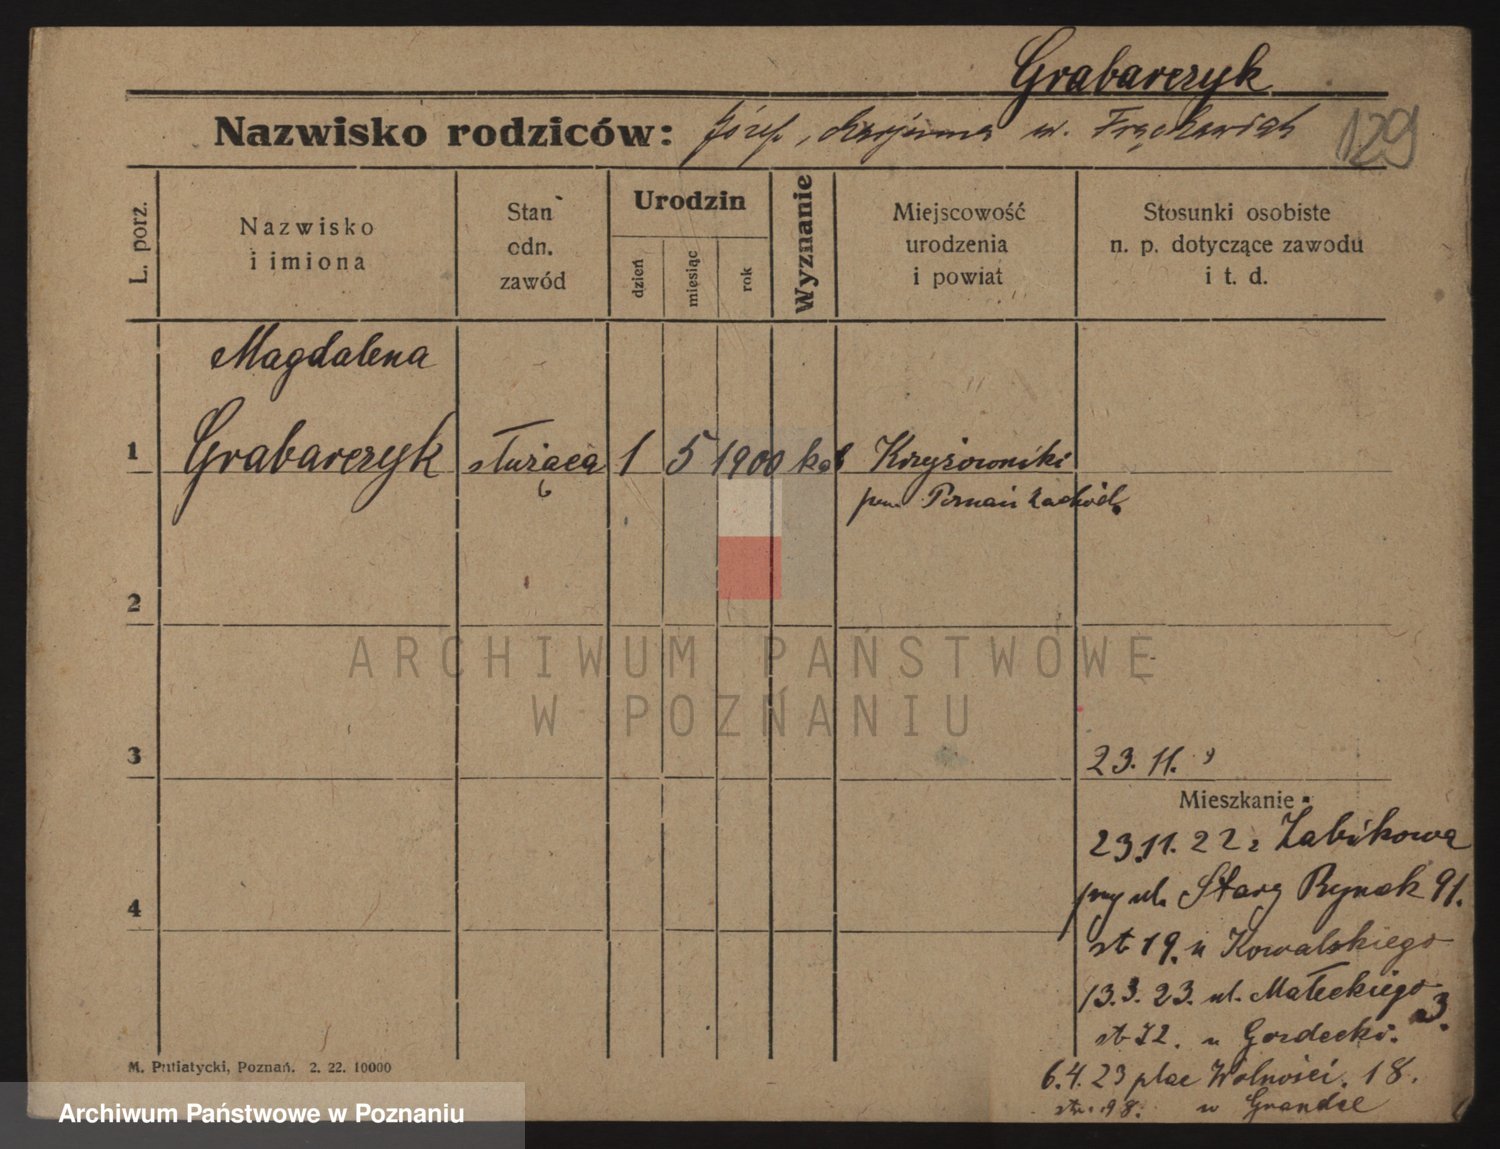 Grabarczyk
Nazwisko rodziców: Józef, Marjanna u. Frąckowiak
129
L. porz.
Nazwisko
i imiona
Stan
odn.
zawód
Urodzin
dzień
miesiąc
rok
Wyznanie
Miejscowość
urodzenia
i powiat
Stosunki osobiste
n. p. dotyczące zawodu
i t. d.
Magdalena
1 Grabarczyk służąca 1 5 1900 kat Krzyżowniki
pow. Poznań Zachód
2
ARCHIWUM PAŃSTWOWE
W POZNANIU
3
23. 11.
Mieszkanie
23.11.22 z Żabikowa
przy ul. Stary Rynek 91.
st 19. u Kowalskiego
13.3.23. ul. Małeckiego 3.
st 72. u Gordecki.
6.4.23 plac Wolności. 18.
u Grandee
4
M. Putiatycki, Poznań. 2. 22. 10000
Archiwum Państwowe w Poznaniu